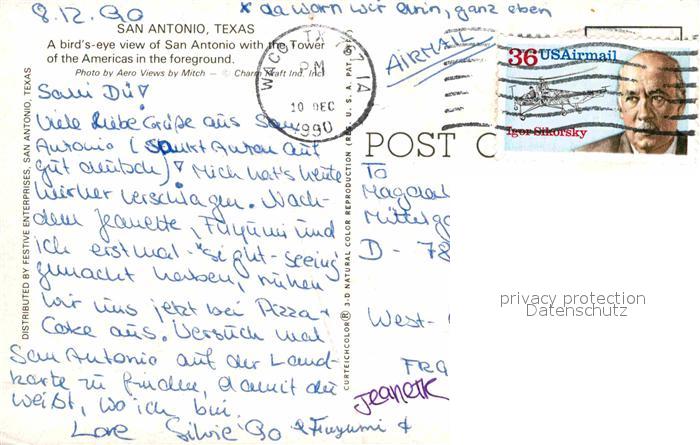 8.12.90
* da warn wir drin, ganz oben
SAN ANTONIO, TEXAS
A bird's-eye view of San Antonio with the Tower
of the Americas in the foreground.
Photo by Aero Views by Mitch — © Charm Kraft Ind. Inc.
WACO, TX 767 1A
PM
10 DEC
1990
AIRMAIL
36 USAirmail
Igor Sikorsky
DISTRIBUTED BY FESTIVE ENTERPRISES, SAN ANTONIO, TEXAS
Viele liebe Grüße aus San
Antonio (Sankt Anton auf
gut deutsch)! Mich hat's heute
hierher verschlagen. Nach-
dem Jeanette, Fuyumi und
ich erstmal "sight-seeing
gemacht haben, ruhen
wir uns jetzt bei Pizza +
Coke aus. Versuch mal
San Antonio auf der Land-
karte zu finden, damit du
weißt, wo ich bin.
Love Silvie 90 & Fuyumi &
Jeanette
CURTEICHCOLOR® 3-D NATURAL COLOR REPRODUCTION (REG. U.S.A. PAT. OFF.)
POST C
To
Mittelga
D - 78
West-
FRG
privacy protection
Datenschutz